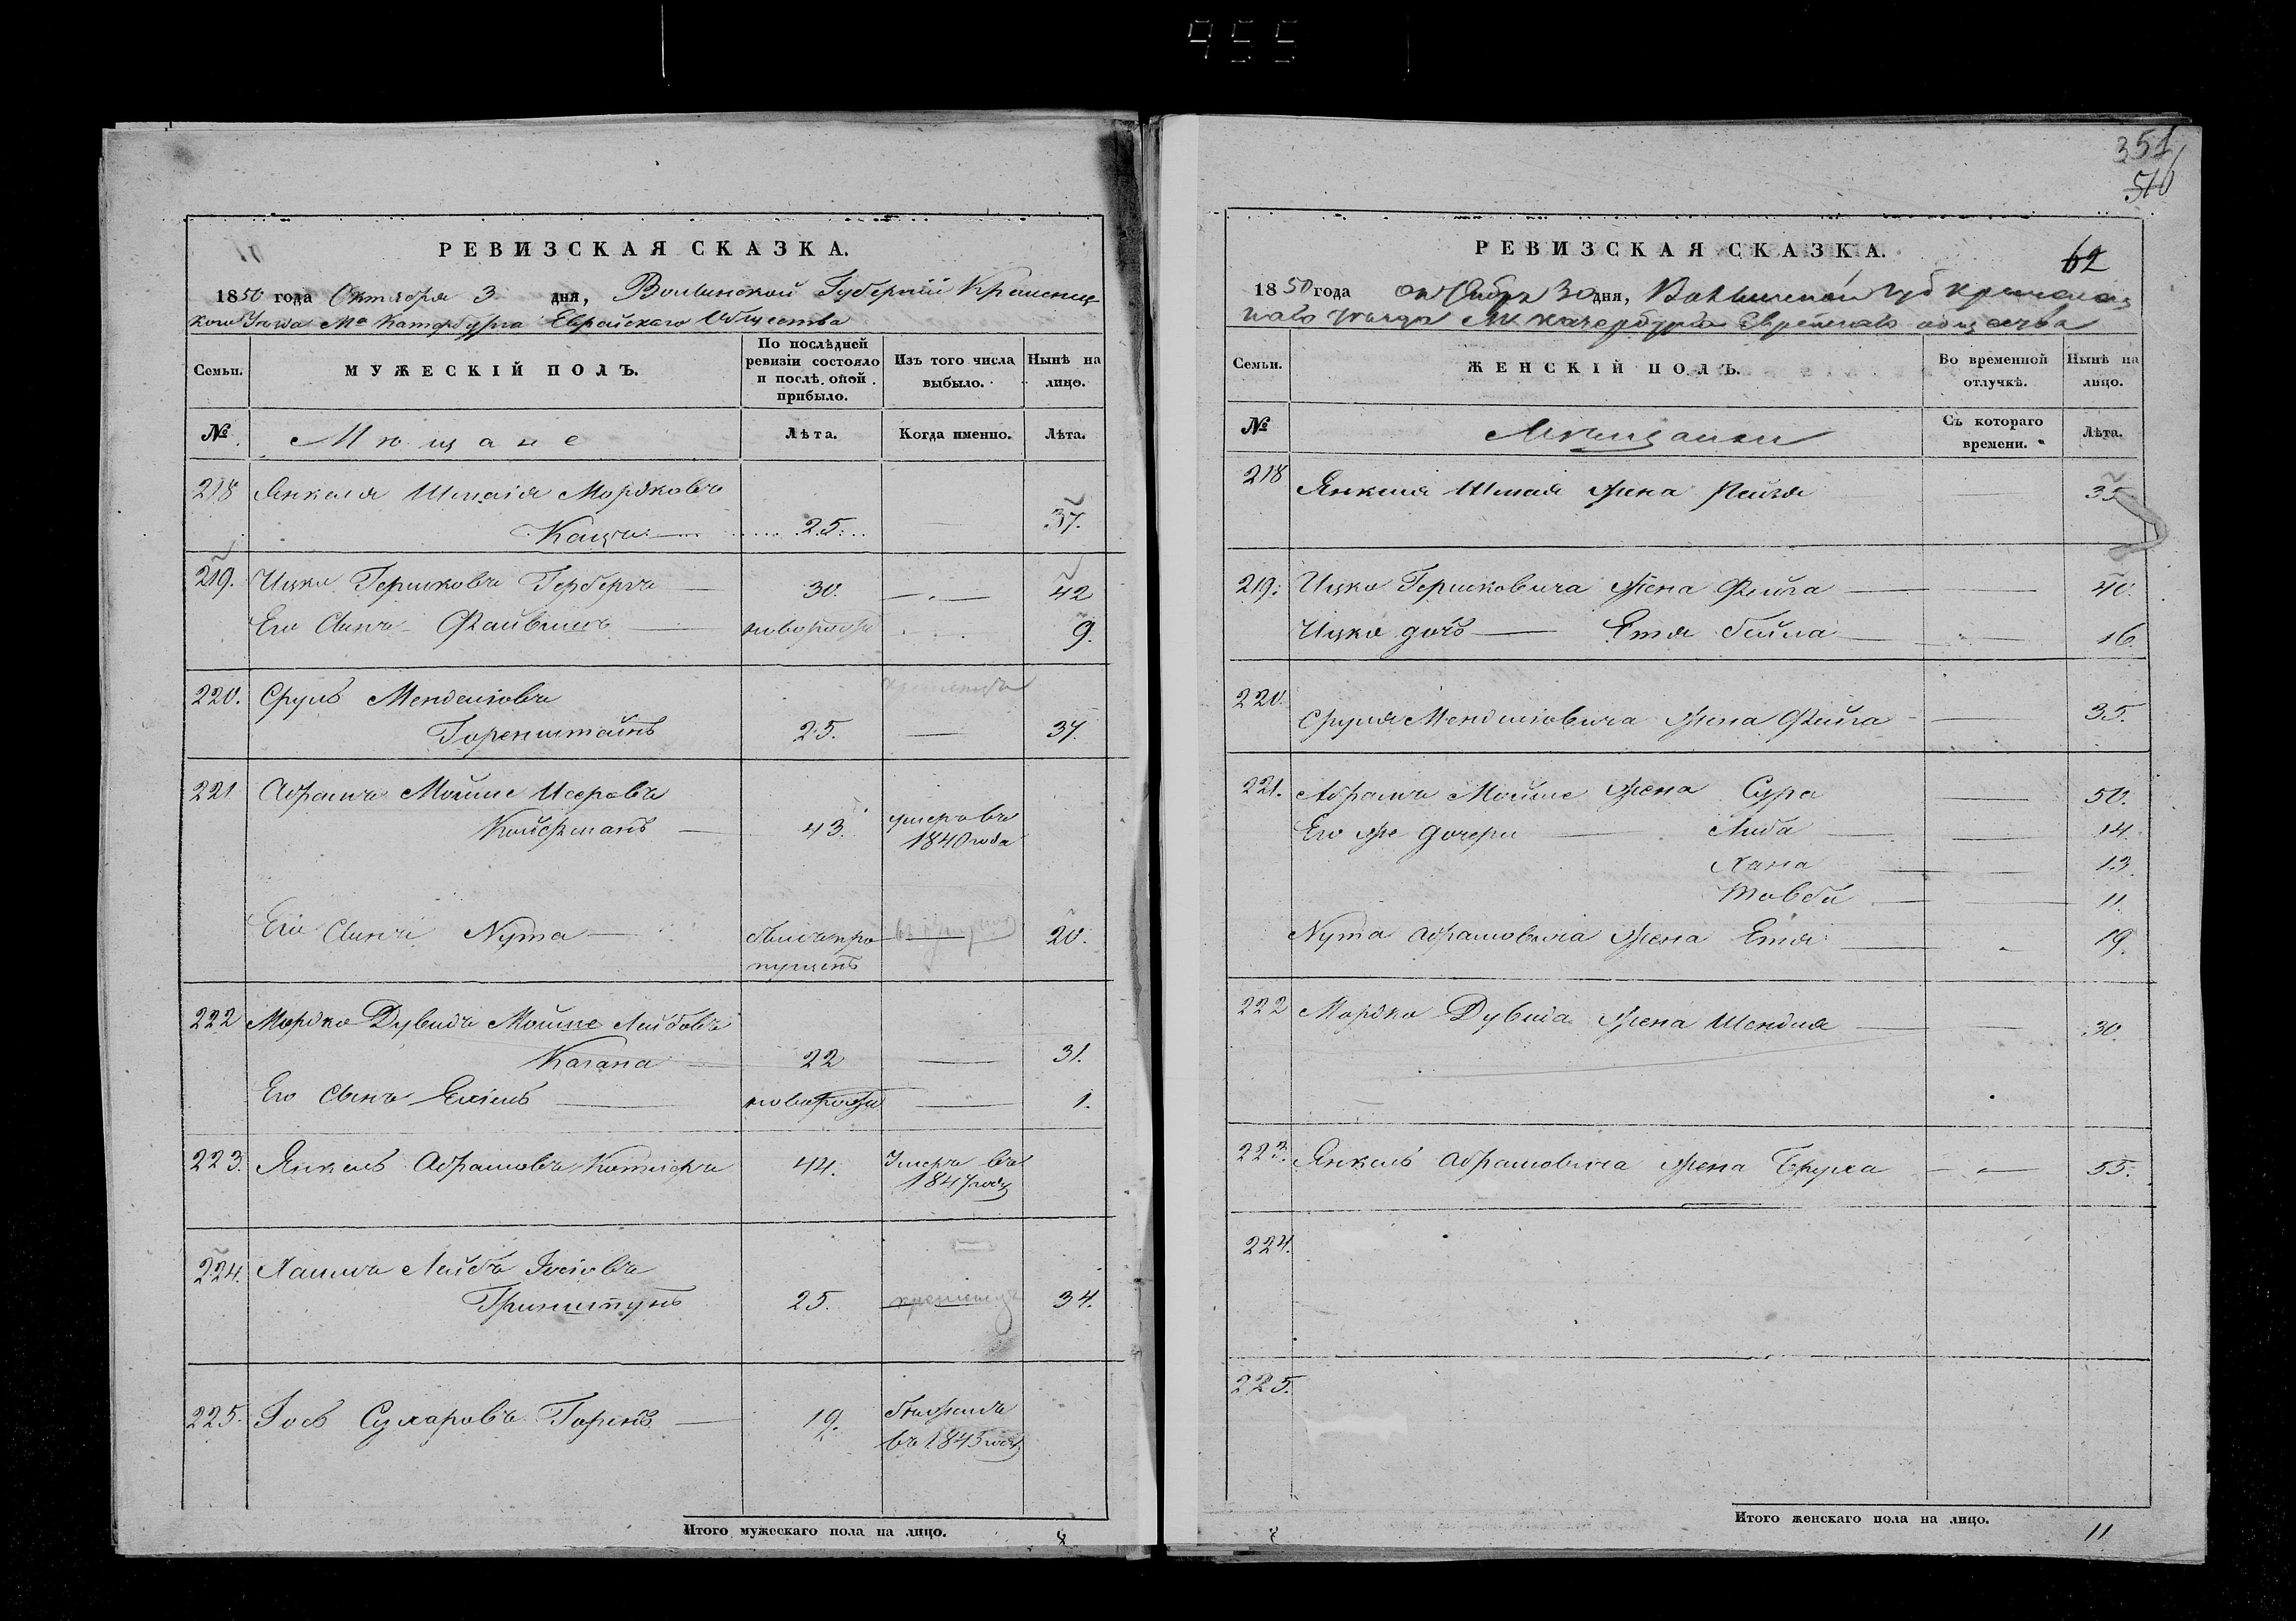 955
РЕВИЗСКАЯ СКАЗКА.
1850 года Октября 3 дня, Волынской Губерніи Кременец-
кого Уезда Мка Катербурга Еврейскаго Общества
Семьи.
МУЖЕСКІЙ ПОЛЪ.
По послѣдней ревизіи состояло и послѣ оной прибыло.
Изъ того числа выбыло.
Нынѣ на лицо.
№
Мещане
Лѣта.
Когда именно.
Лѣта.
218 Янкель Шмаія Мордковъ
Кацъ 25. 37.
219. Ицко Гершковъ Герберъ 30. 42
Его Сынъ Файвишъ новорожд 9.
220. Сруль Менделіовъ
Горенштайнъ 25. 37.
221 Абрамъ Мойше Исеровъ
43. умеръ въ
1840 года
Его Сынъ Нута былъ про 20.
пущенъ
222 Мордко Дувидъ Мойше Лейбовъ
Кагана 22 31.
Его Сынъ Ехіель новорожд 1.
223. Янкель Абрамовъ Котляръ 44. Умеръ въ
1847 году
224. Хаимъ Лейбъ Іосіовъ
25. 34.
225. Іось Сухаровъ 19.
въ 1845 году
Итого мужескаго пола на лицо. 8
351
510
РЕВИЗСКАЯ СКАЗКА.
62
1850 года октября 30 дня, Волынской губ
Еврейскаго общества
Семьи.
ЖЕНСКІЙ ПОЛЪ.
Во временной отлучкѣ.
Нынѣ на лицо.
№
Мещанки
Съ котораго времени.
Лѣта.
218 Янкеля Шмаія жена 35
219. Ицко Гершковича жена Фейга 40.
Ицко дочь Етя Бейла 16.
220. Сруля Менделіовича жена Фейга 35.
221. Абрамъ Мойше жена Сура 50.
Его же дочери Либа 14.
Хана 13.
Товба 11.
Нута Абрамовича жена Етя 19.
222 Мордко Дувида жена Шендля 30.
223. Янкель Абрамовича жена Бруха 55.
224.
225.
Итого женскаго пола на лицо. 11